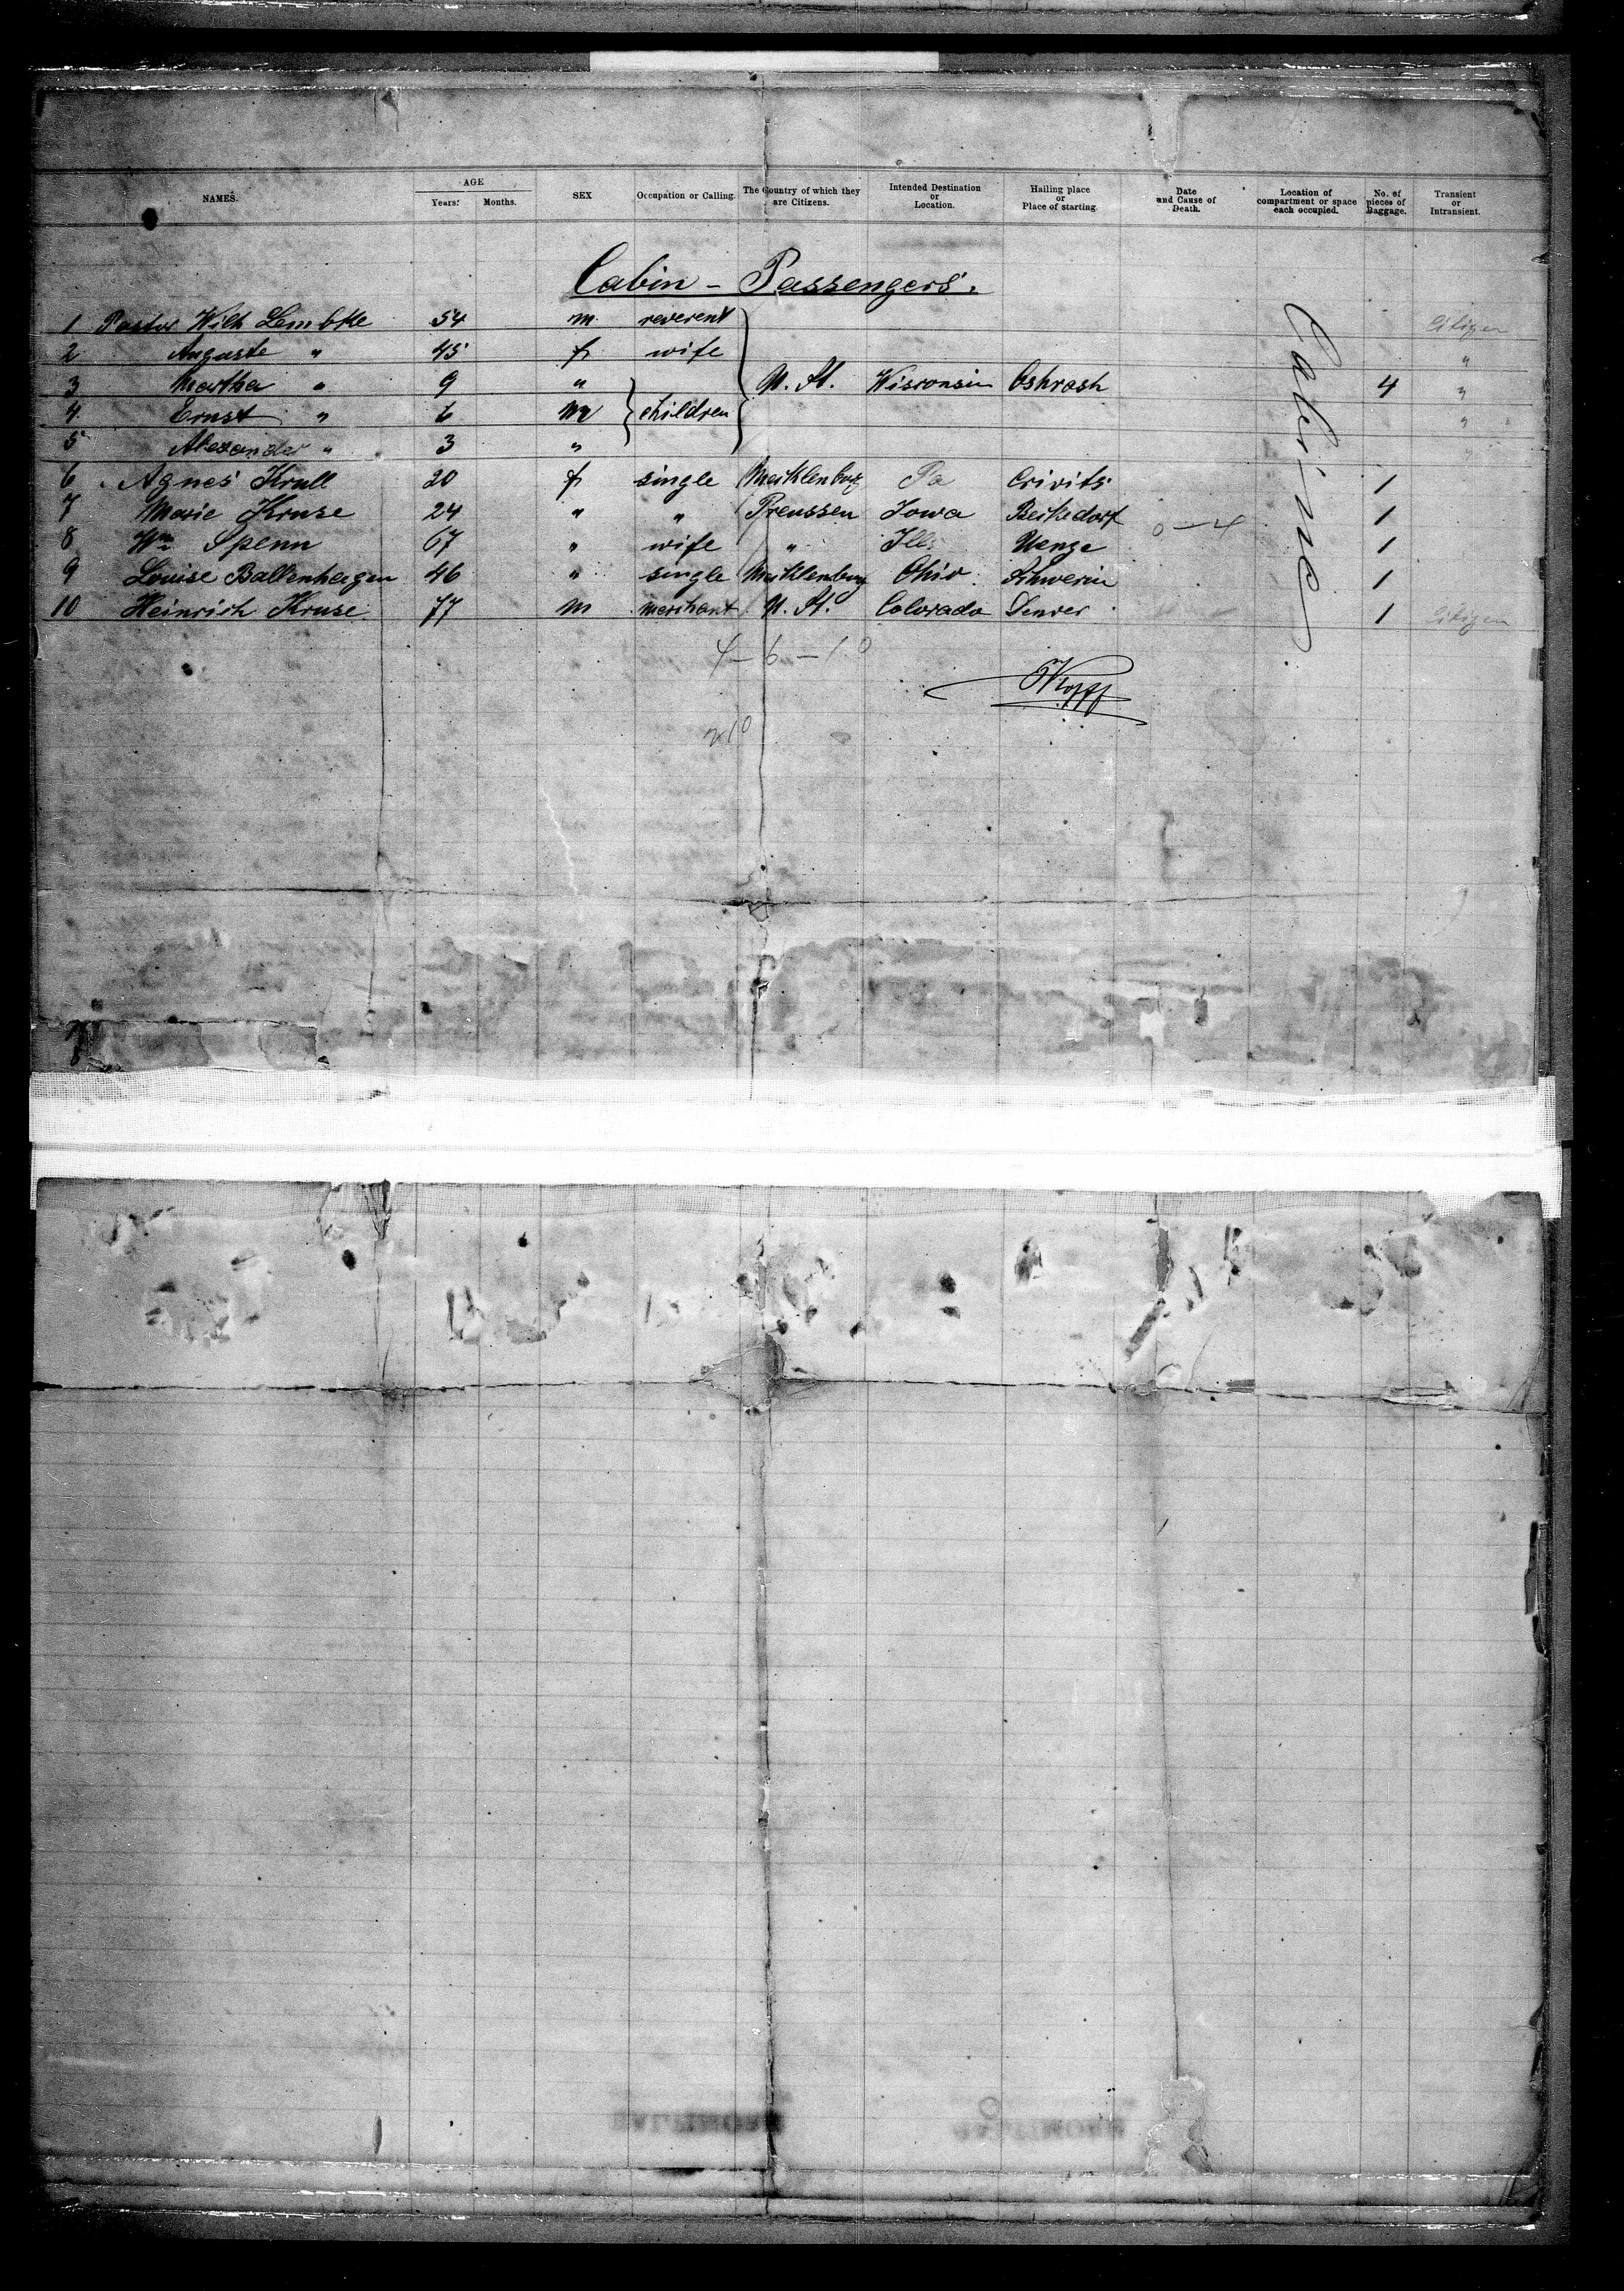 NAMES. AGE Years. Months. SEX Occupation or Calling. The Country of which they are Citizens. Intended Destination or Location. Hailing place or Place of starting. Date and Cause of Death. Location of compartment or space each occupied. No. of pieces of Baggage. Transient or Intransient.
Cabin - Passengers.
1 Pastor Wilh Lembke 54 m reverent Citizen
2 Auguste " 45 f wife "
3 Martha " 9 " U. St. Wisconsin Oshrosh 4 "
4 Ernst " 6 m children "
5 Alexander " 3 " "
6 Agnes Krull 20 f single Mecklenburg Pa Crivits 1
7 Marie Kruse 24 " " Preussen Iowa Berkedorf 1
8 Wm Spenn 67 " wife " Ills Uenze 1
9 Louise Ballenhagen 46 " single Mecklenburg Ohio Schwerin 1
10 Heinrich Kruse 77 m merchant U. St. Colorado Denver 1 Citizen
Cabine
0 - 4
4 - 6 - 10
210
BALTIMORE
BALTIMORE